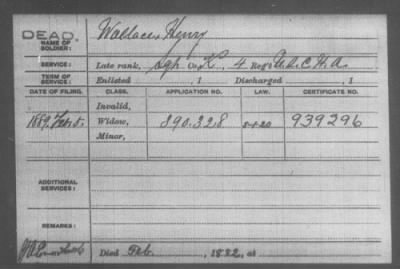 DEAD.
NAME OF SOLDIER: Wallace, Henry
SERVICE: Late rank, Sgt Co. K, 4 Reg't U.S.C.H.A.
TERM OF SERVICE: Enlisted , 1 Discharged , 1
DATE OF FILING. CLASS. APPLICATION NO. LAW. CERTIFICATE NO.
Invalid,
1889, Feb 5. Widow, 890.328 939296
Minor,
ADDITIONAL SERVICES:
REMARKS:
Died Feb. , 1882, at